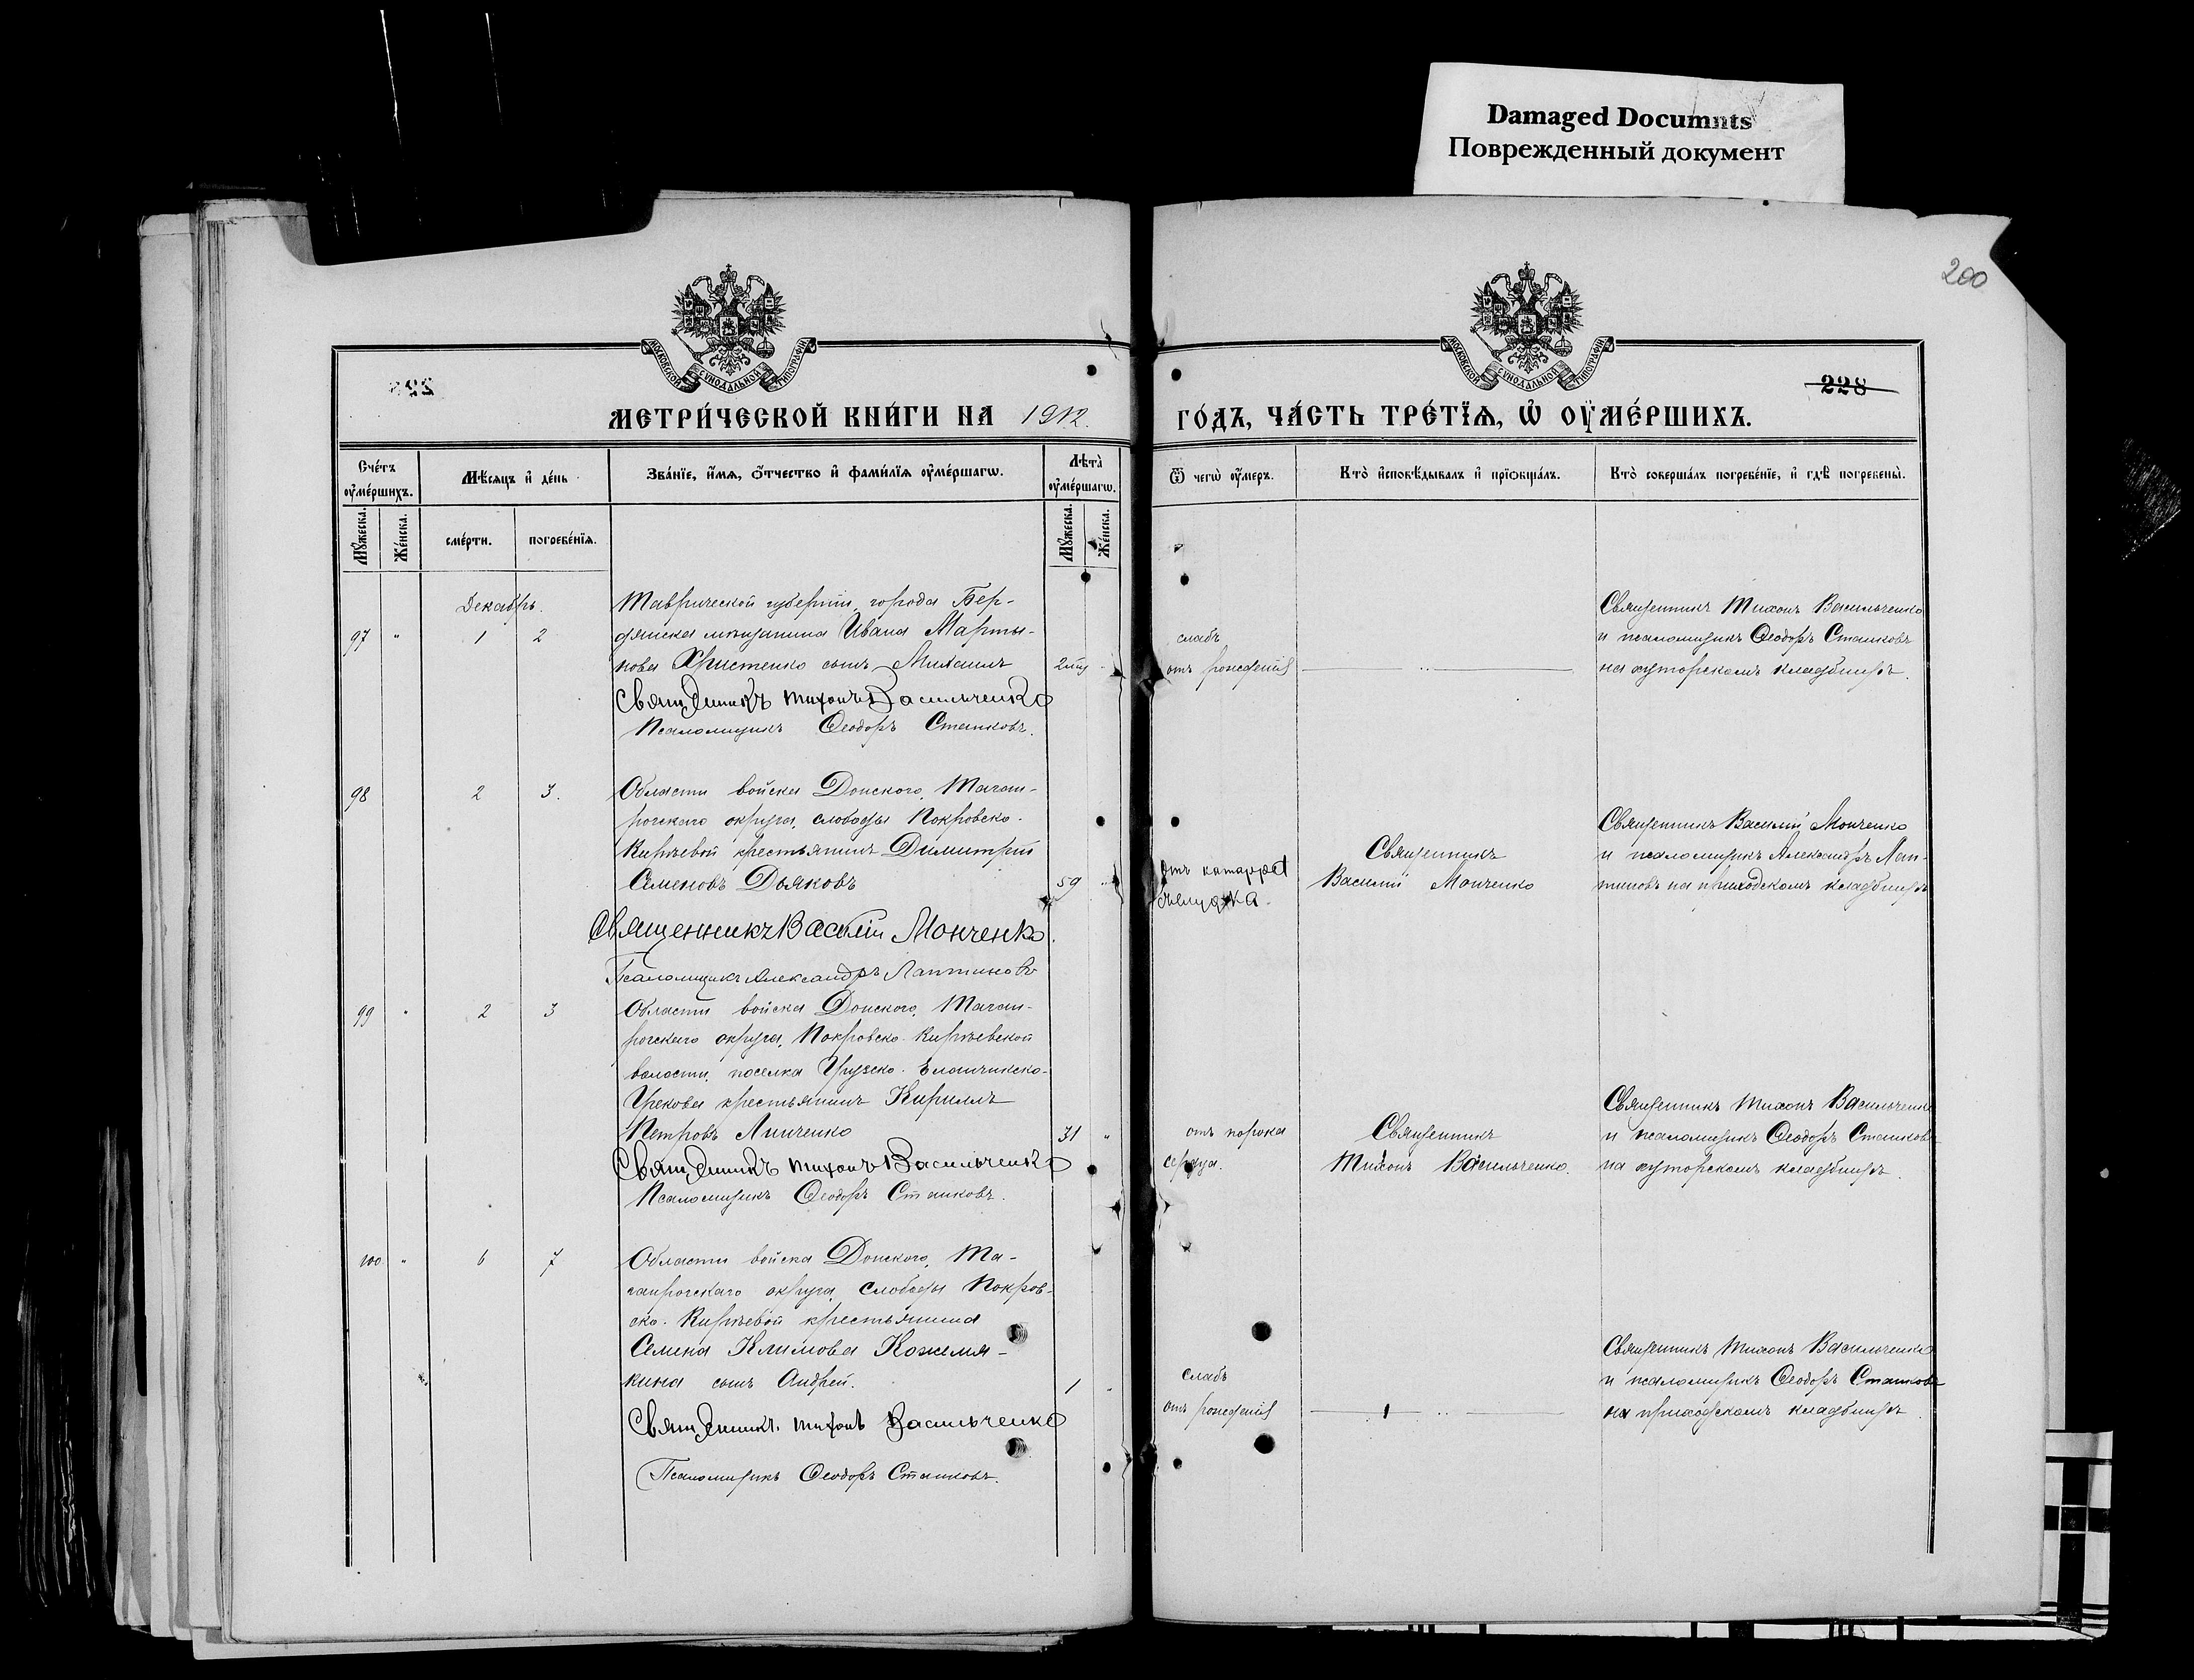 Damaged Documnts
Поврежденный документ
200
МОСКОВСКОЙ СѴНОДАЛЬНОЙ ТИПОГРАФІИ
МОСКОВСКОЙ СѴНОДАЛЬНОЙ ТИПОГРАФІИ
228
МЕТРИ́ЧЕСКОЙ КНИ́ГИ НА 1912.
ГО́ДЪ, ЧА́СТЬ ТРЕ́ТЇѦ, Ѡ҆ ОУ҆МЕ́РШИХЪ.
Сче́тъ оу҆ме́ршихъ.
Мѣ́сяцъ и҆ де́нь
Зва́нїе, и҆́мя, ѻ҆́тчество и҆ фами́лїя оу҆ме́ршагѡ.
Лѣта̀ оу҆ме́ршагѡ.
Ѿ чегѡ̀ оу҆́меръ.
Кто̀ и҆сповѣ́дывалъ и҆ прїѡбща́лъ.
Кто̀ соверша́лъ погребе́нїе, и҆ гдѣ̀ погребены̀.
Мꙋ́жеска.
Же́нска.
сме́рти.
погребе́нїя.
Мꙋ́жеска.
Же́нска.
Декабрь.
97 " 1 2
Таврической губерніи, города Бер-
дянска мѣщанина Ивана Марты-
нова Христенко сынъ Михаилъ
Священникъ Тихонъ Васильченко
Псаломщикъ Ѳеодоръ Станковъ.
слабъ
отъ рожденія
Священникъ Тихонъ Васильченко
и псаломщикъ Ѳеодоръ Станковъ
на хуторскомъ кладбищѣ.
98 2 3.
Области войска Донского, Таган-
рогскаго округа, слободы Покровско-
Кирѣевой крестьянинъ Димитрій
Семеновъ Дьяковъ 59
Священникъ Василій Монченко.
Псаломщикъ Александръ Лаптиновъ
отъ катарра
желудка.
Священникъ
Василій Монченко
Священникъ Василій Монченко
и псаломщикъ Александръ Лап-
тиновъ на приходскомъ кладбищѣ
99 " 2 3
Области войска Донского, Таган-
рогскаго округа, Покровско-Кирѣевской
волости, поселка Грузско-Еланчикско-
Грекова крестьянинъ Кириллъ
Петровъ Линченко 31 "
Священникъ Тихонъ Васильченко
Псаломщикъ Ѳеодоръ Станковъ.
отъ порока
сердца.
Священникъ
Тихонъ Васильченко.
Священникъ Тихонъ Васильченко
и псаломщикъ Ѳеодоръ Станковъ
на хуторскомъ кладбищѣ.
100 " 6 7
Области войска Донского, Та-
ганрогскаго округа, слободы Покров-
ско-Кирѣевой крестьянина
Семена Климова Кожемя-
кина сынъ Андрей. 1
Священникъ Тихонъ Васильченко
Псаломщикъ Ѳеодоръ Станковъ.
слабъ
отъ рожденія
Священникъ Тихонъ Васильченко
и псаломщикъ Ѳеодоръ Станковъ
на приходскомъ кладбищѣ.